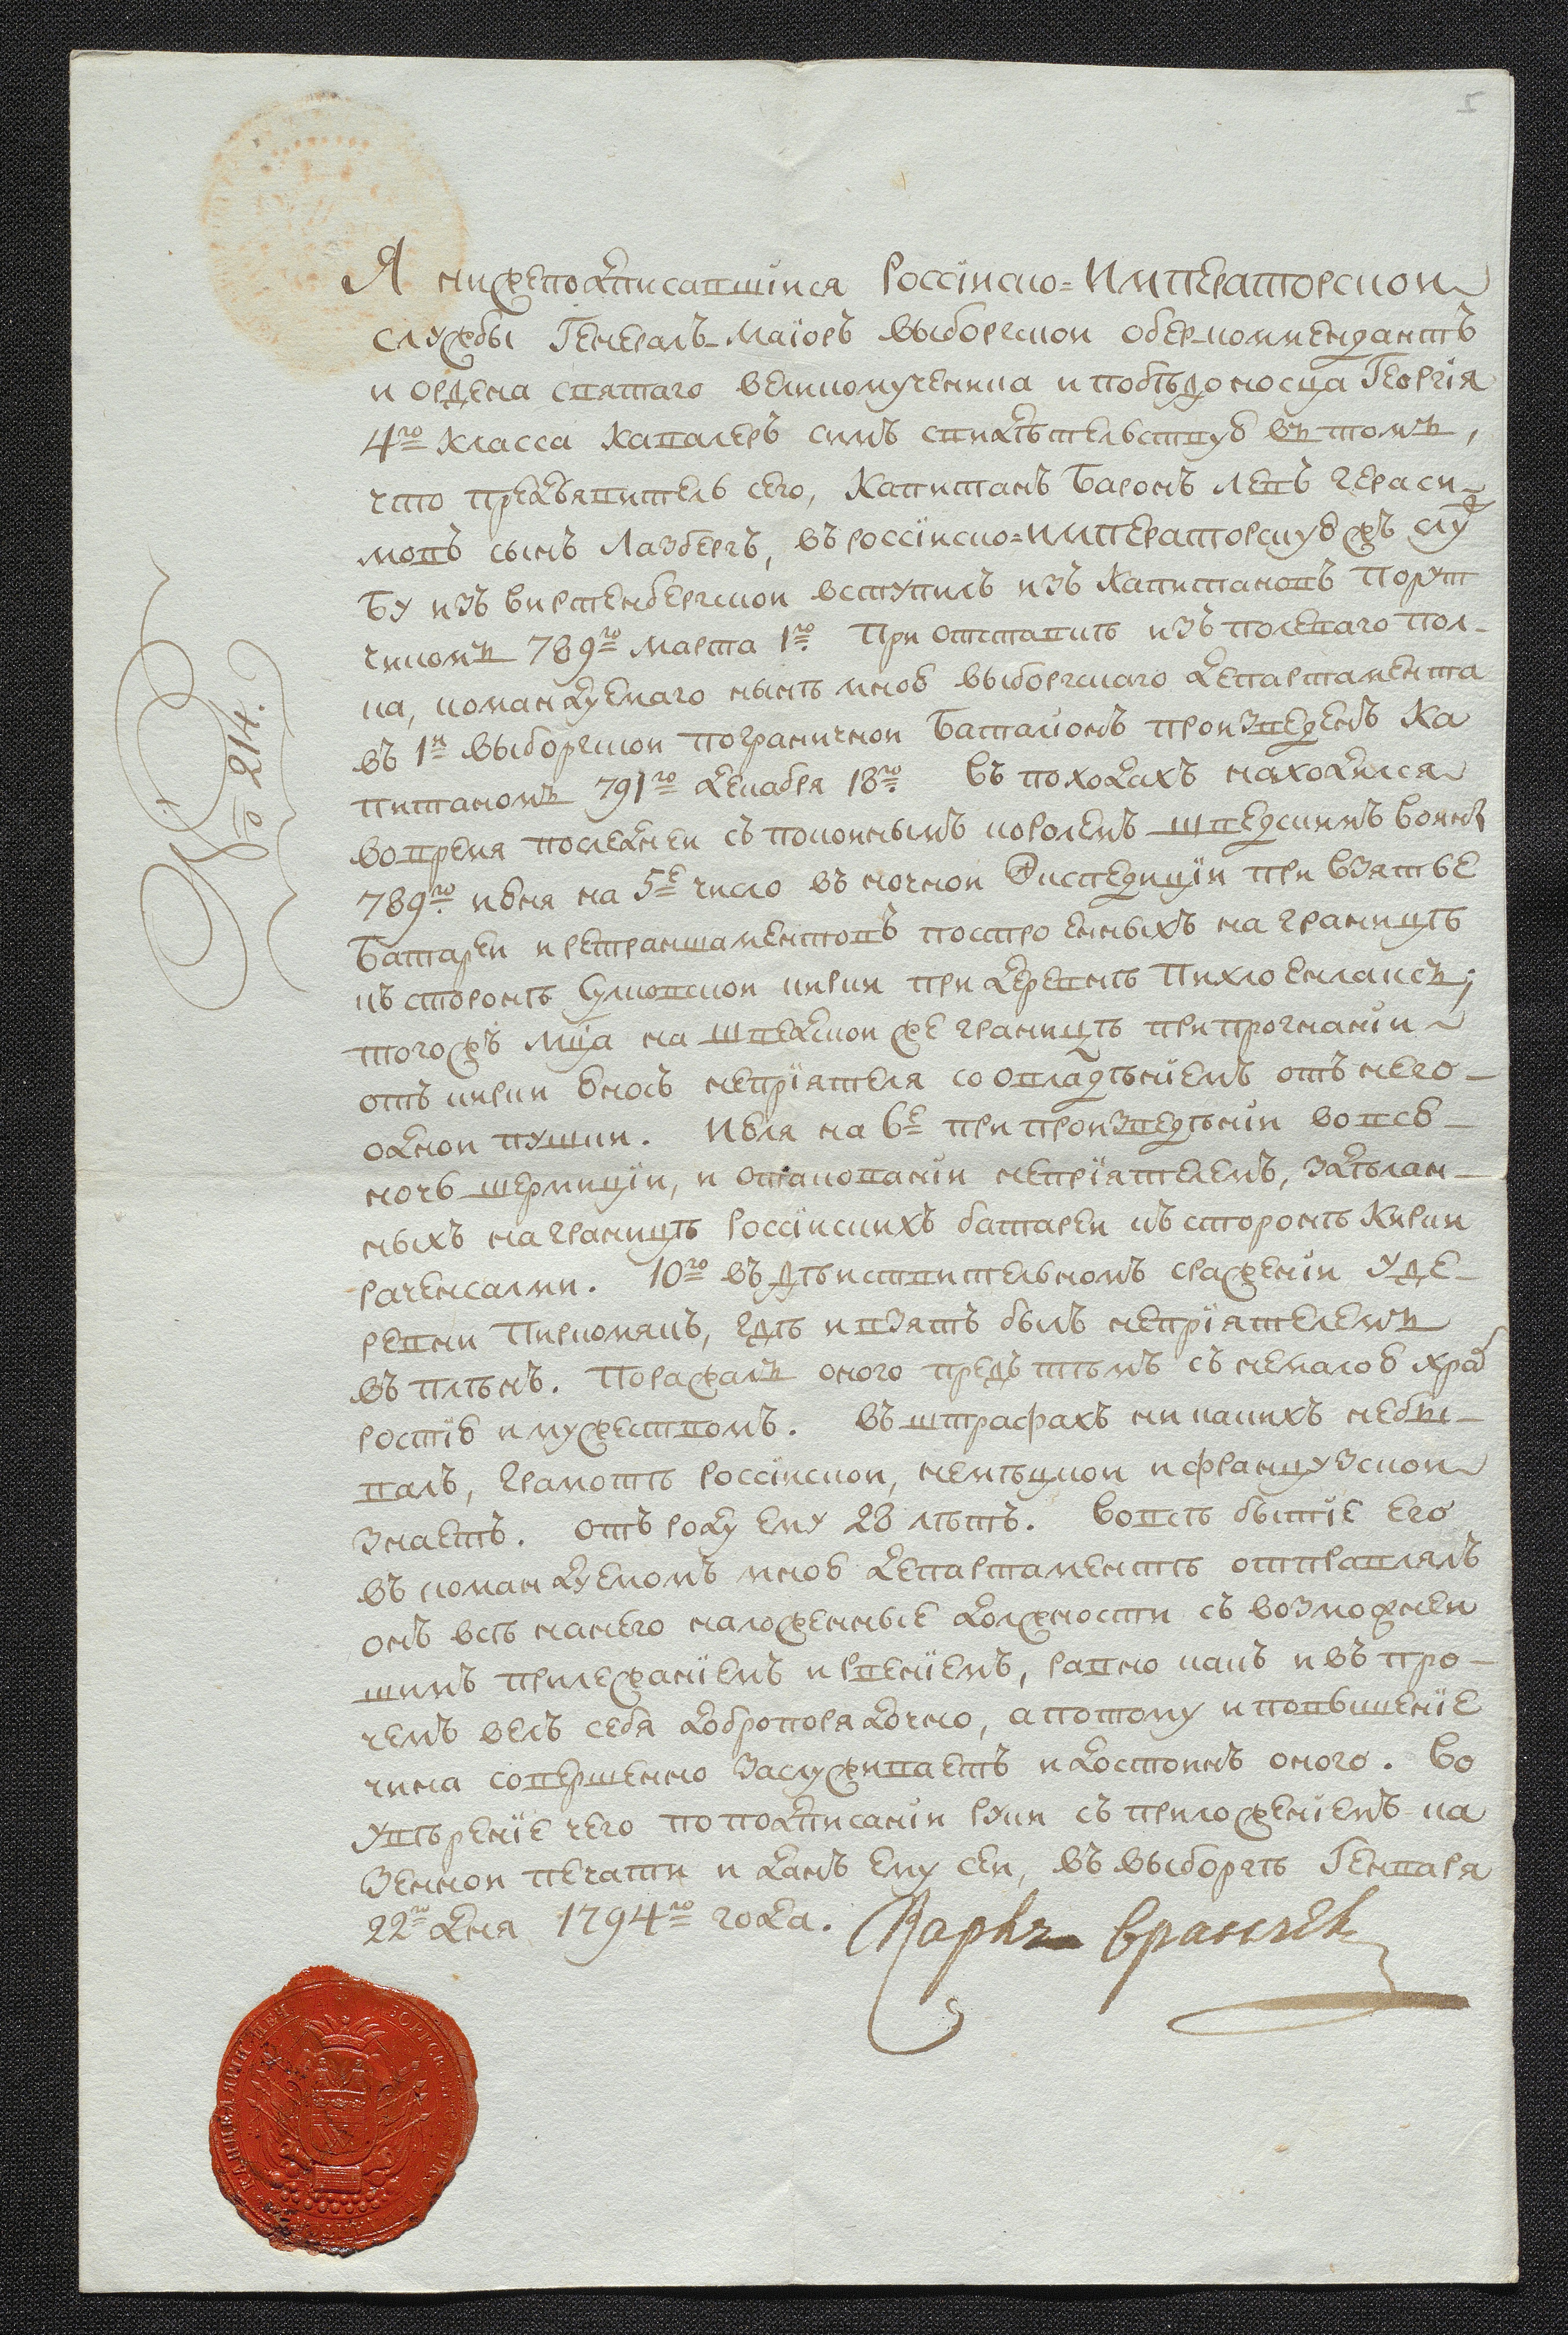 5
Я нижеподписавшийся Россійско=Императорской
службы Генералъ-Маіоръ выборгской обер-коммендантъ
и ордена святаго великомученика и побѣдоносца Георгія
4го Класса Кавалеръ симъ свидѣтельствую въ томъ,
что предъявитель сего, Капитанъ Баронъ Левъ Гераси-
мовъ сынъ Лазбергъ, въ россійско=императорскую жъ служ
бу изъ виртенбергской вступилъ изъ Капитановъ Порут
чикомъ 789го Марта 1го. При отставкѣ изъ полеваго пол-
ка, командуемаго нынѣ мною выборгскаго департамента
въ 1й выборгской пограничной баталіонъ произведенъ Ка
питаномъ 791го декабря 18го. въ походахъ находился
во время последней съ покойнымъ королемъ шведскимъ войны
789го. июня на 5е число въ ночной Экспедиціи при взятье
батареи и ретраншаментовъ построенныхъ на границѣ
къ сторонѣ Сумовской кирки при деревнѣ Пихлоенлаксъ;
тогожъ мца на шведской же границѣ при прогнаніи
отъ кирки Еносъ непріятеля со овладѣніемъ отъ него
одной пушки. Июля на 6е при произведѣніи во всю
ночь шермиціи, и отаковании непріятелемъ, здѣлан-
ныхъ на границѣ россійскихъ батареи къ сторонѣ Кирки
рагенсалми. 10го въ дѣйствительномъ сраженіи у де-
ревни Пиркомякъ, гдѣ и взятъ былъ непріятелемъ
въ плѣнъ. Поражалъ оного предъ тѣмъ съ немалою храб
ростію и мужествомъ. въ штрафахъ ни какихъ небы-
валъ, грамотѣ россійской, немѣцкой и французской
знаетъ. отъ роду ему 28 лѣтъ. во всѣ бытіе его
въ командуемомъ мною департаментѣ отправлялъ
онъ всѣ нанего наложенные должности съ возможней
шимъ прилежаніемъ и рвеніемъ, равно какъ и въ про-
чемъ велъ себя добропорядочно, а потому и повышеніе
чина совершенно заслуживаетъ и достоинъ оного. во
увѣреніе чего по подписаніи руки съ приложеніемъ ка
зенной печати и данъ ему сей, въ выборгѣ Генваря
22го дня 1794го года. Карлъ Врангель
No 214.